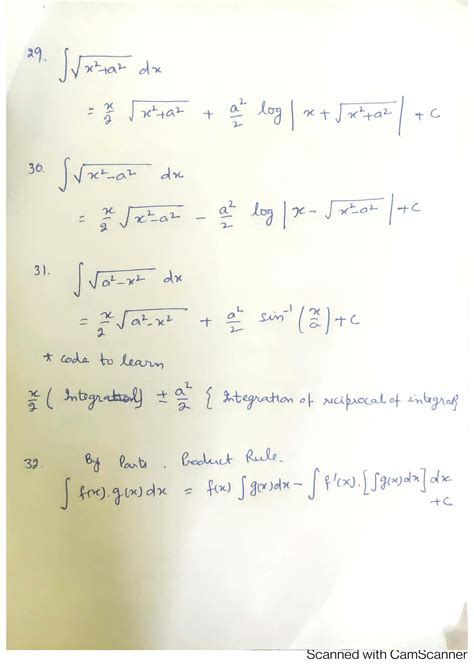 29. ∫√x²+a² dx
= x/2 √x²+a² + a²/2 log | x + √x²+a² | + c
30. ∫√x²-a² dx
= x/2 √x²-a² - a²/2 log | x - √x²-a² | + c
31. ∫√a²-x² dx
= x/2 √a²-x² + a²/2 sin⁻¹ (x/a) + c
* code to learn
x/2 ( Integration} ± a²/2 { Integration of reciprocal of integral}
32. By Parts. Product Rule.
∫ f(x).g(x) dx = f(x) ∫g(x)dx - ∫ f'(x).[∫g(x)dx] dx
+c
Scanned with CamScanner